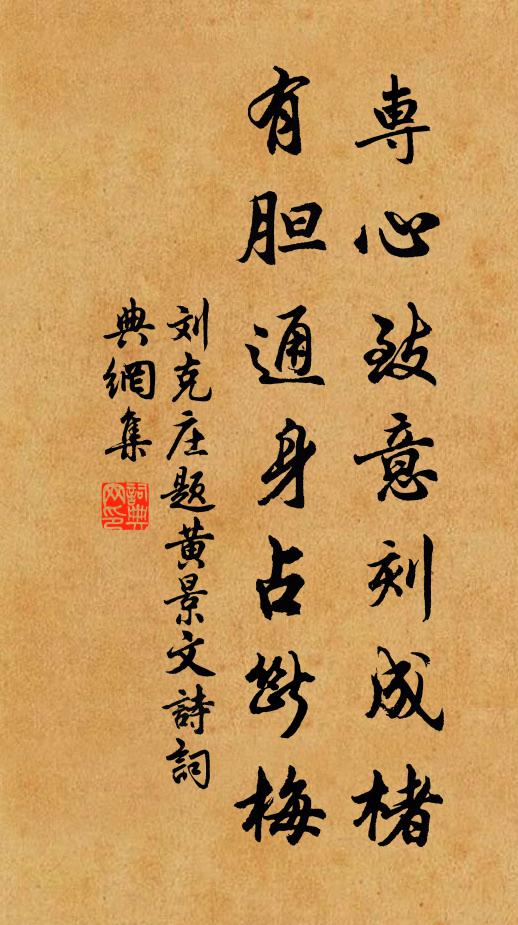 専心致意刻成楮
有胆通身占断梅
刘克庄题黄景文詩詞
典網集
詞典